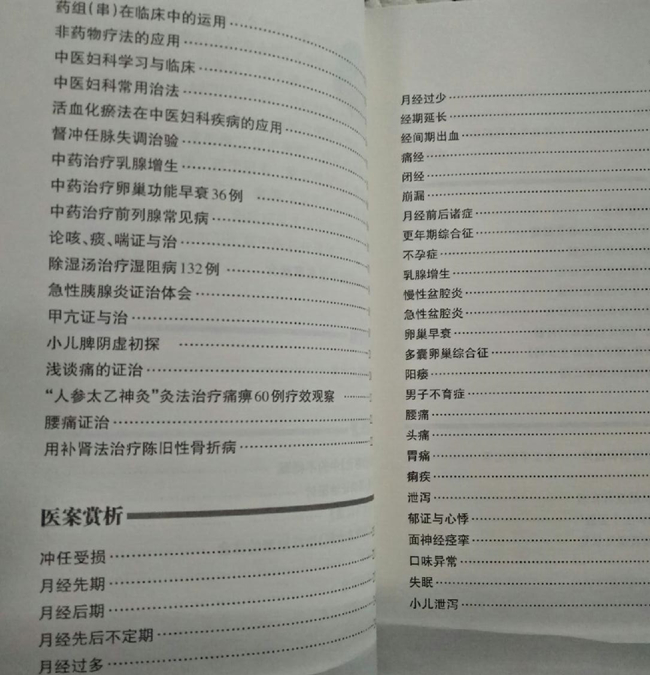 药组(串)在临床中的运用
非药物疗法的应用
中医妇科学习与临床
中医妇科常用治法
活血化瘀法在中医妇科疾病的应用
督冲任脉失调治验
中药治疗乳腺增生
中药治疗卵巢功能早衰36例
中药治疗前列腺常见病
论咳、痰、喘证与治
除湿汤治疗湿阻病132例
急性胰腺炎证治体会
甲亢证与治
小儿脾阴虚初探
浅谈痛的证治
“人参太乙神灸”灸法治疗痛痹60例疗效观察
腰痛证治
用补肾法治疗陈旧性骨折病
医案赏析
冲任受损
月经先期
月经后期
月经先后不定期
月经过多
月经过少
经期延长
经间期出血
痛经
闭经
崩漏
月经前后诸症
更年期综合征
不孕症
乳腺增生
慢性盆腔炎
急性盆腔炎
卵巢早衰
多囊卵巢综合征
阳痿
男子不育症
腰痛
头痛
胃痛
痢疾
泄泻
郁证与心悸
面神经痉挛
口味异常
失眠
小儿泄泻